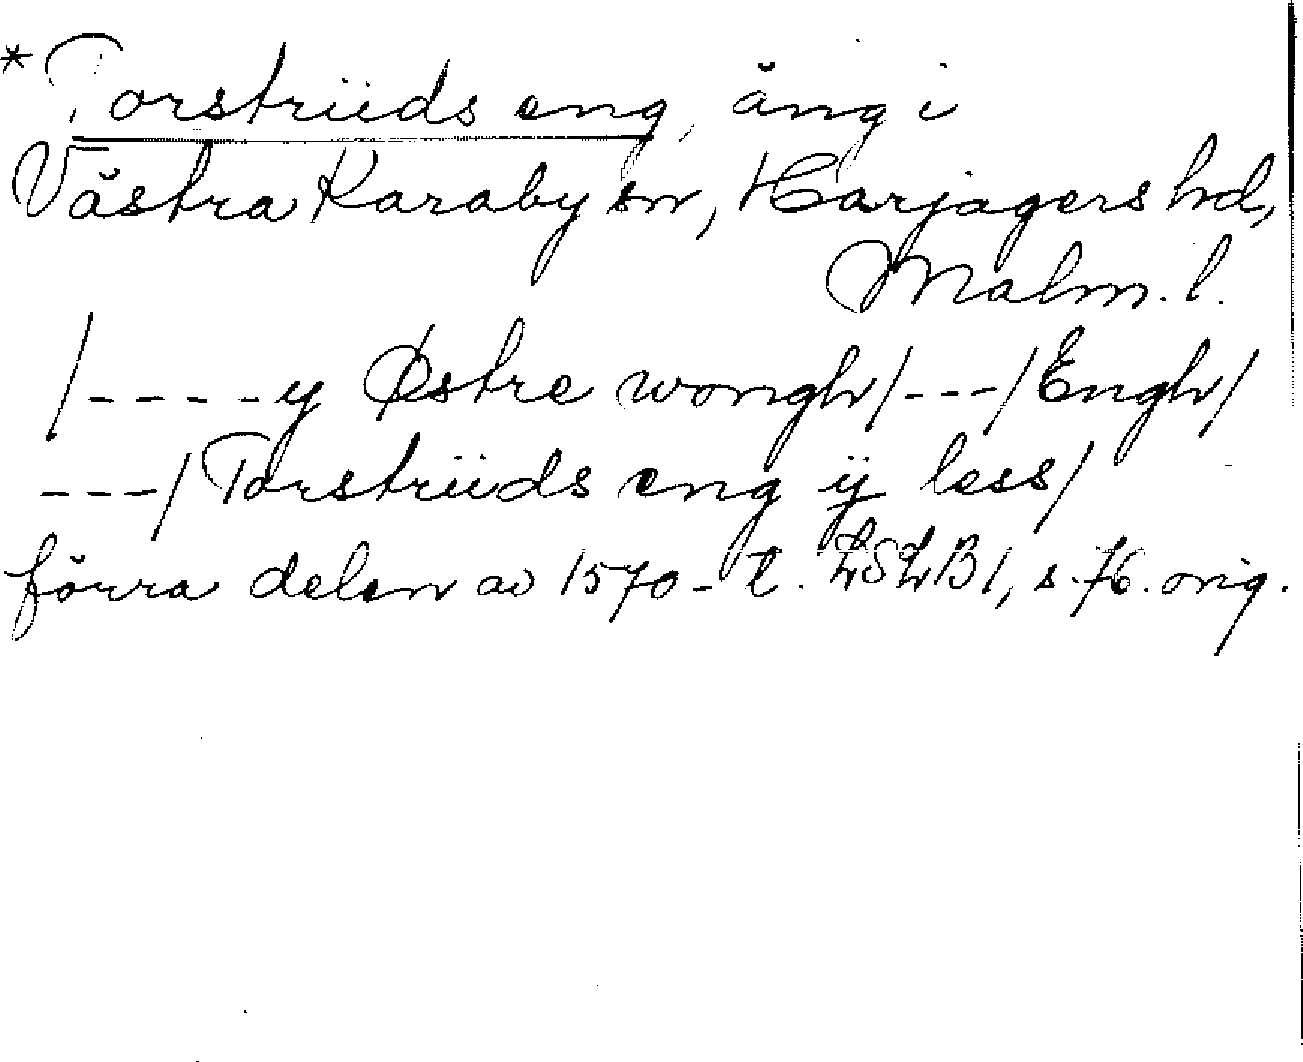 *Torstrüds eng, äng i
Västra Karaby sn, Harjagers hd,
Malm. l.
/----y Østre wongh/---/Engh/
---/Torstrüds eng ÿ less/
förra delen av 1570-t. LSLB 1, s. 76. orig.